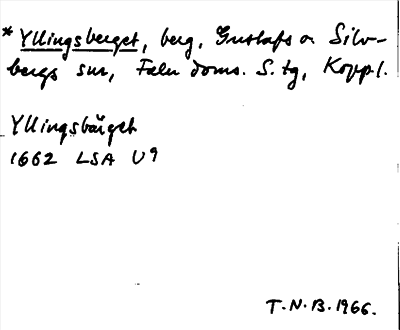 * Yllingsberget, berg, Gustafs o. Silv-
bergs snr, Falu doms. S. tg, Kopp.l.
Yllingsbärget
1662 LSA U9
T.N.B. 1966.